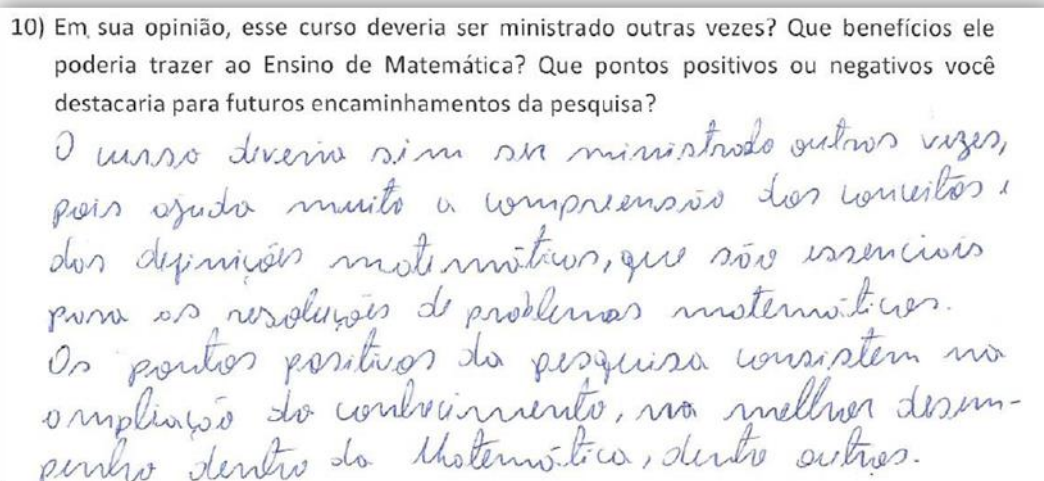 10) Em sua opinião, esse curso deveria ser ministrado outras vezes? Que benefícios ele
poderia trazer ao Ensino de Matemática? Que pontos positivos ou negativos você
destacaria para futuros encaminhamentos da pesquisa?
O curso deveria sim ser ministrado outras vezes,
pois ajuda muito a compreensão dos conceitos e
das definições matemáticas, que são essenciais
para as resoluções de problemas matemáticos.
Os pontos positivos da pesquisa consistem na
ampliação do conhecimento, no melhor desem-
penho dentro da Matemática, dentre outros.